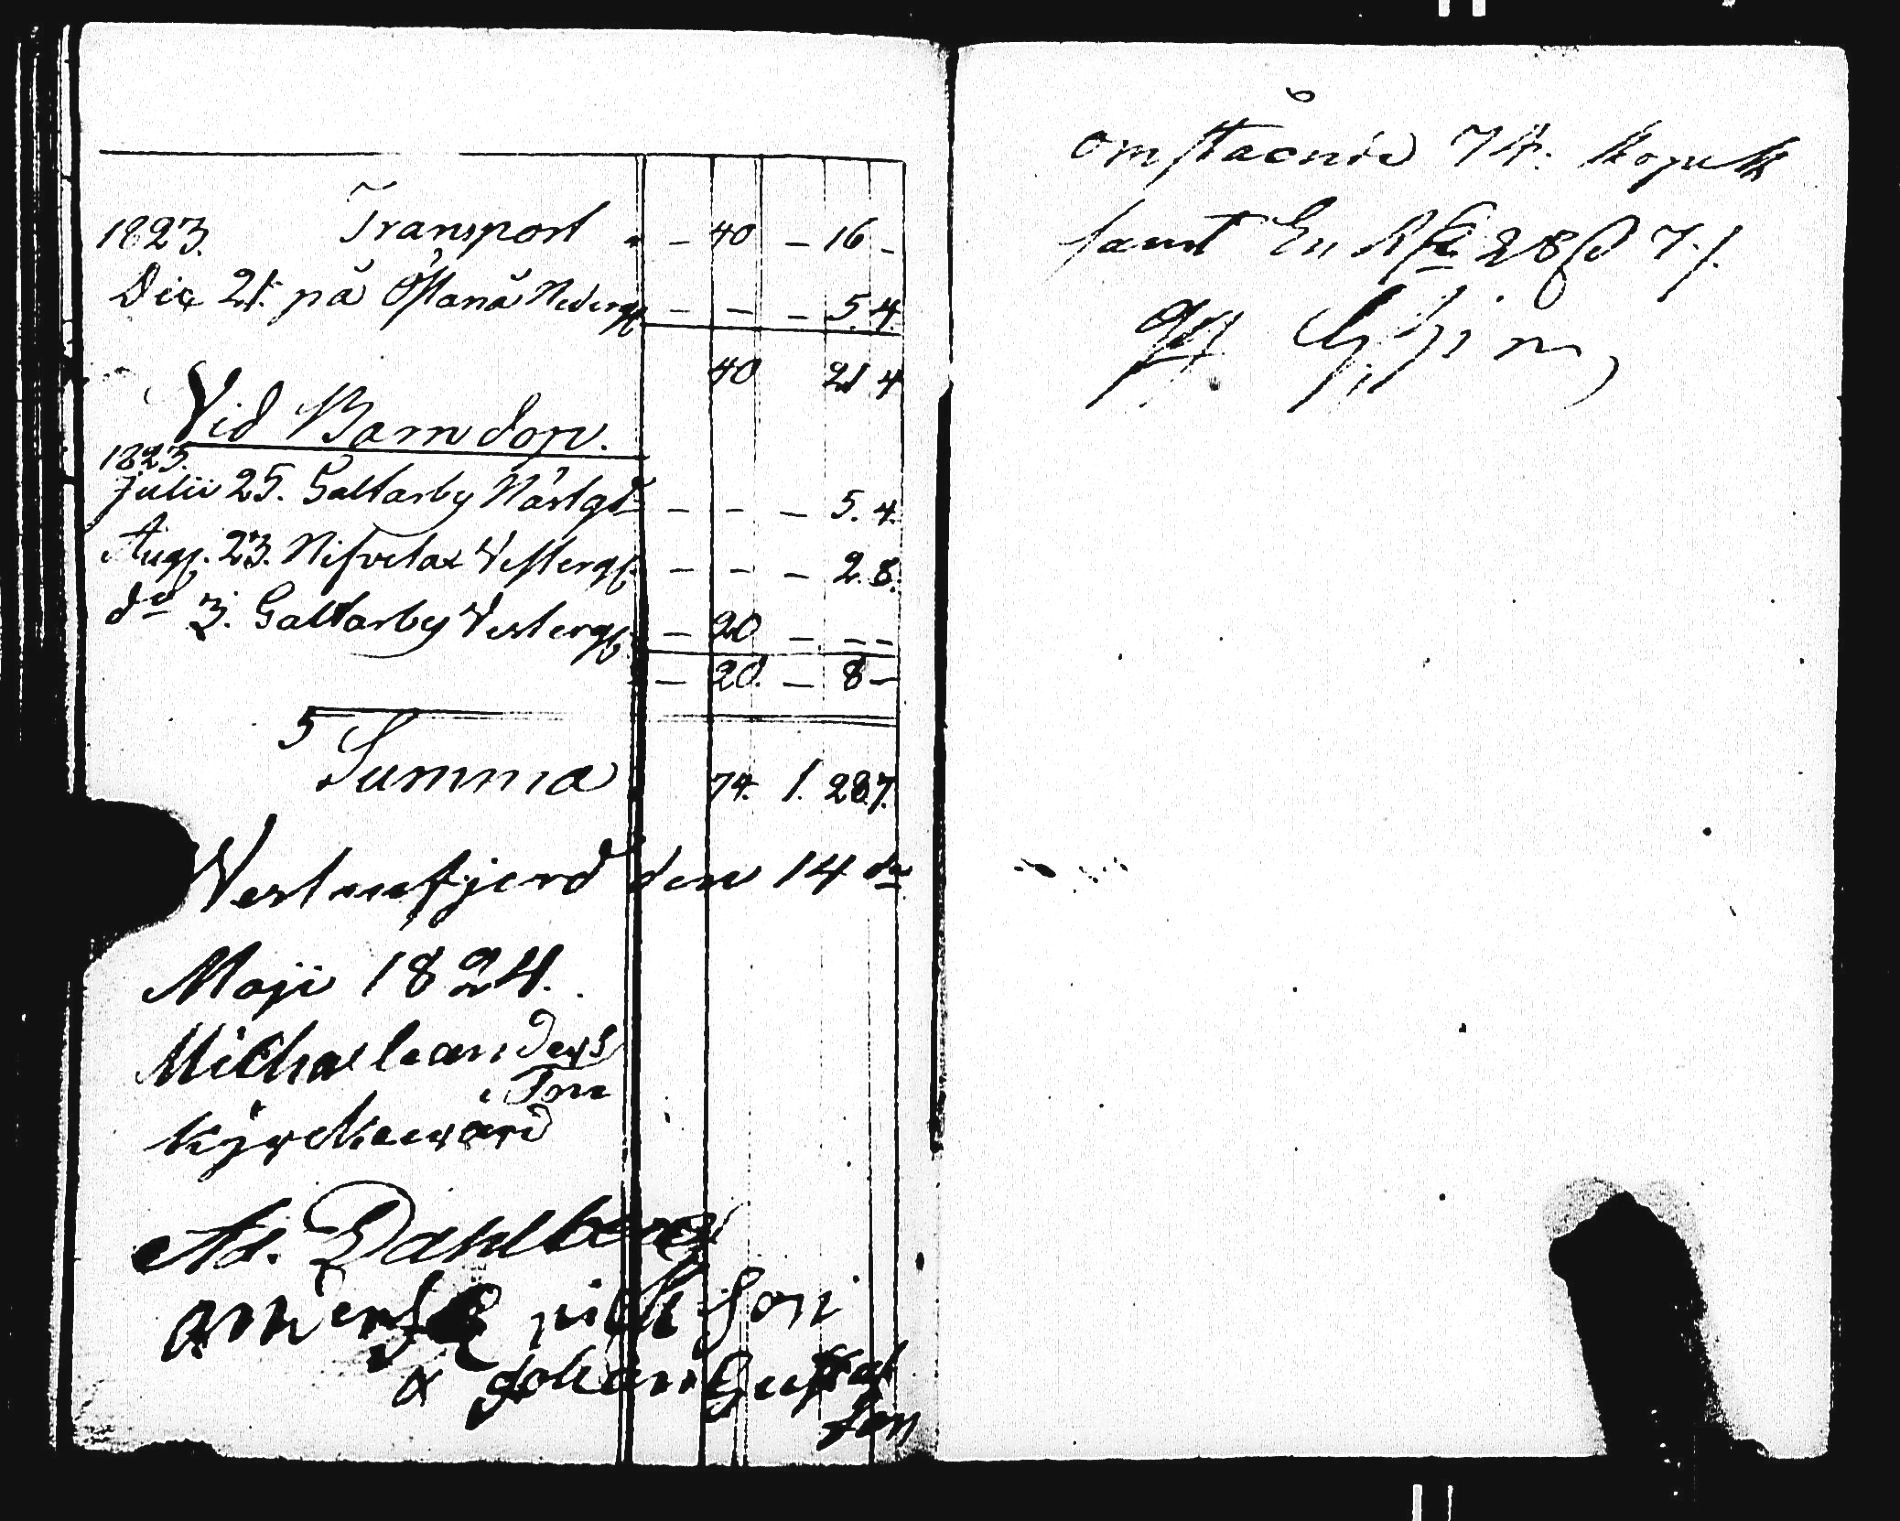 1823. Transport " - 40 - 16 -
Dec 21. på Östanå Nederg. - - - 5. 4.
40 21 4
Vid Barndop.
1823.
Julii 25. Galtarby Norrgd - - - 5. 4.
Aug. 23. Vesterg. - - - 2. 8.
do 3. Galtarby Vesterg. - 20 - - -
- 20. - 8 -
Summa 74. 1. 28 7.
Westanfjerd den 14de
Maji 1824.
Michael anders
Son
kyrckewärd
Ad. Dahlberg
anders son
Johan Gustaf
Son
6
omstående 74. kopek
samt En Rd 28 s 7.